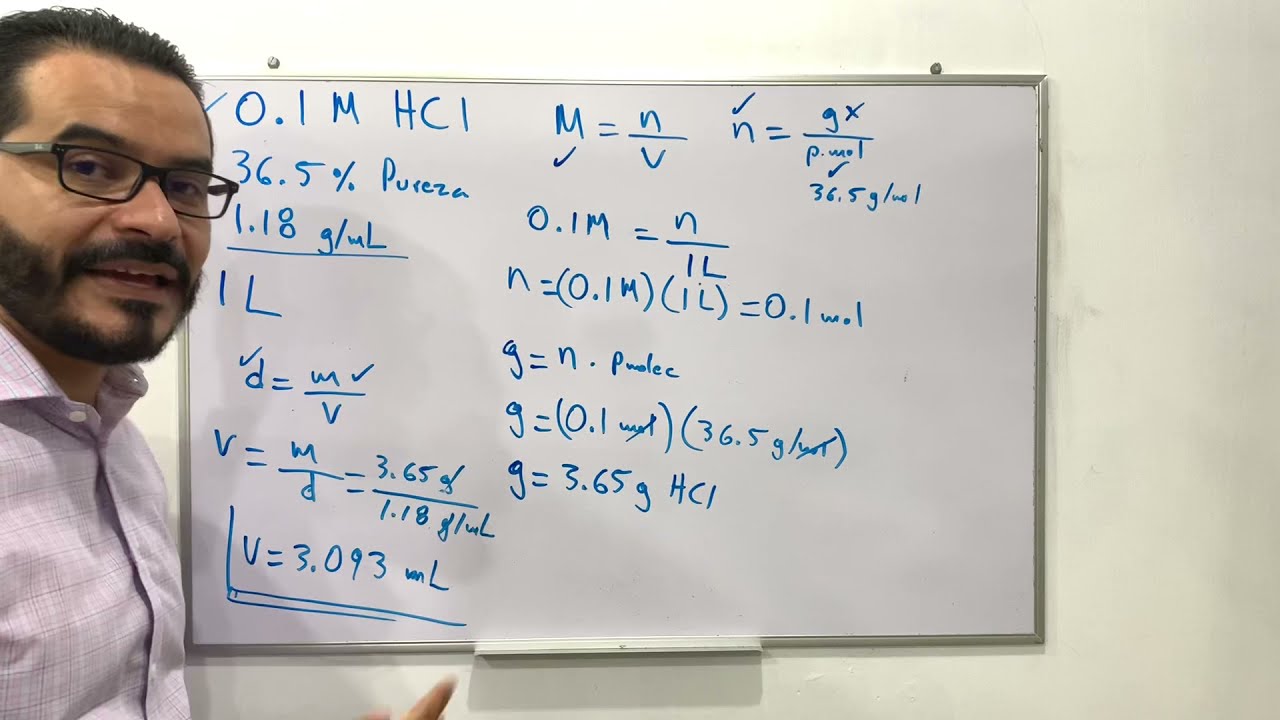 ✓0.1M HCl
36.5% Pureza
1.18 g/mL
1L
✓d = m✓/V
V = m/d = 3.65 g/1.18 g/mL
V = 3.093 mL
M✓ = n/V
✓n = gx/p.mol✓
36.5 g/mol
0.1M = n/1L
n = (0.1M)(1L) = 0.1 mol
g = n · pmolec
g = (0.1 mol)(36.5 g/mol)
g = 3.65 g HCl